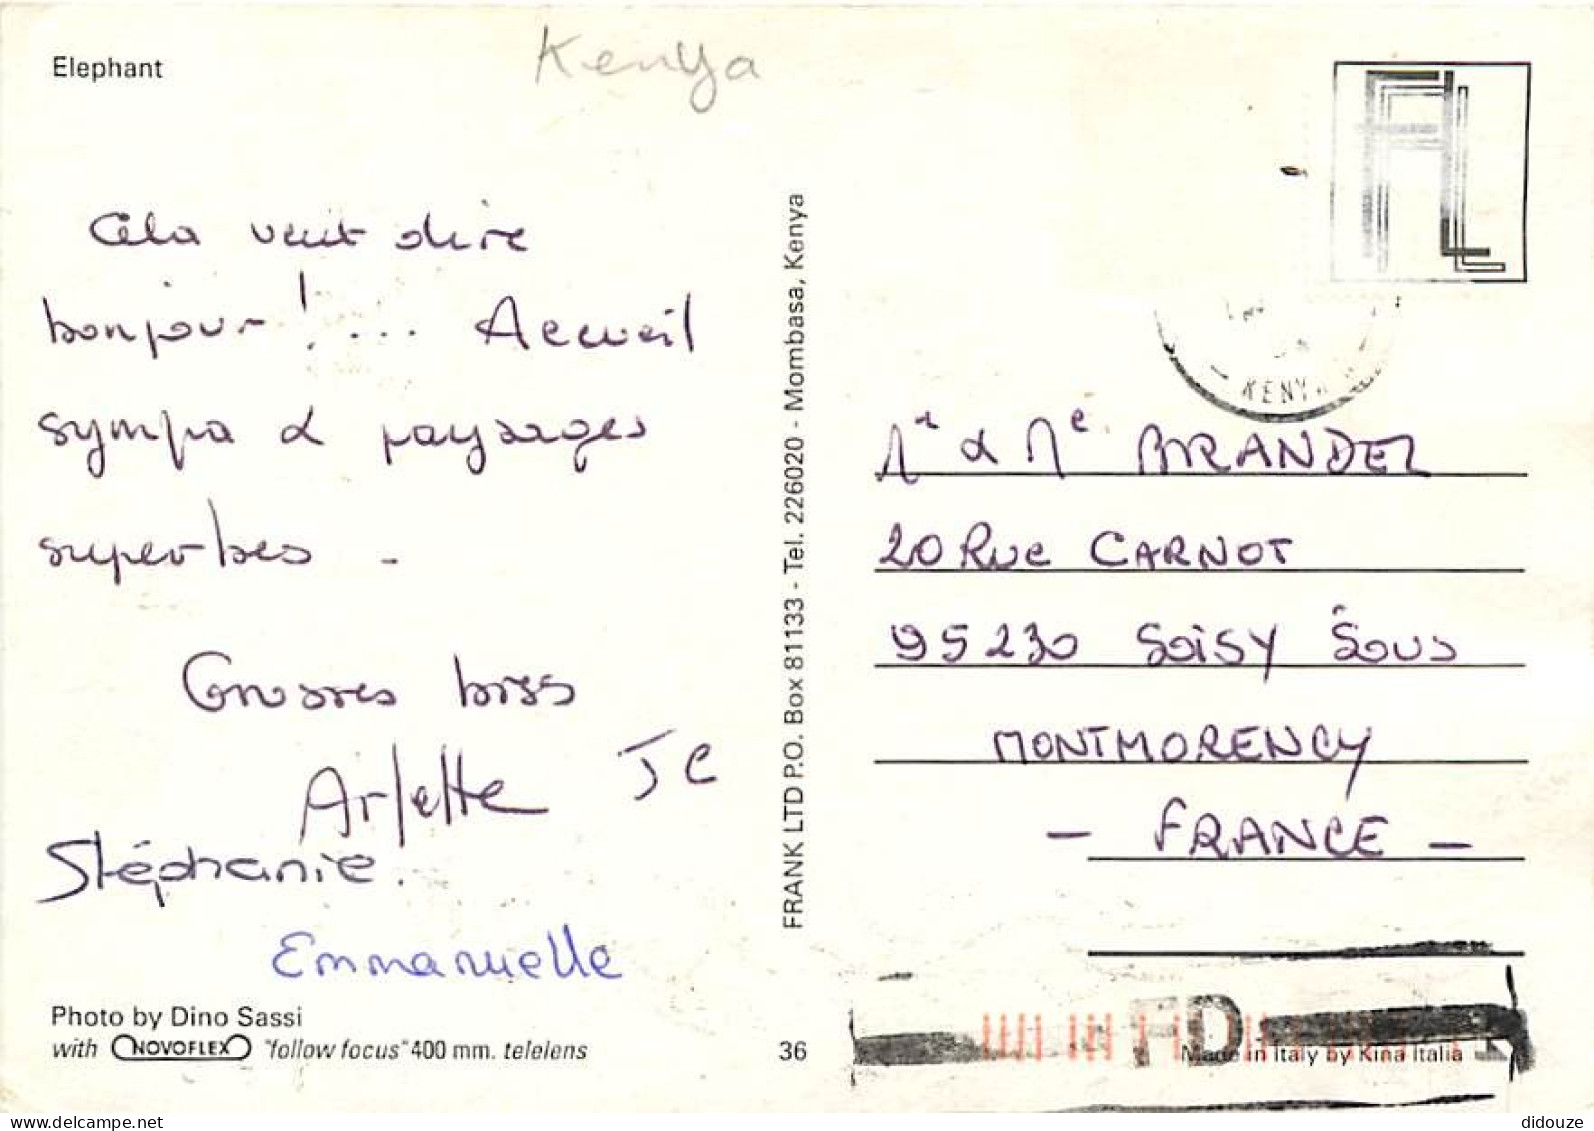 Elephant
Kenya
Cela veut dire
bonjour !... Accueil
sympa & paysages
superbes -
Grosses bises
Arlette JC
Stéphanie.
Emmanuelle
Photo by Dino Sassi
with NOVOFLEX "follow focus" 400 mm. telelens
FRANK LTD P.O. Box 81133 - Tel. 226020 - Mombasa, Kenya
36
FL
KENYA
Mr & Me BIRANDEL
20 Rue CARNOT
95230 SOISY SOUS
MONTMORENCY
- FRANCE -
Made in Italy by Kina Italia
didouze